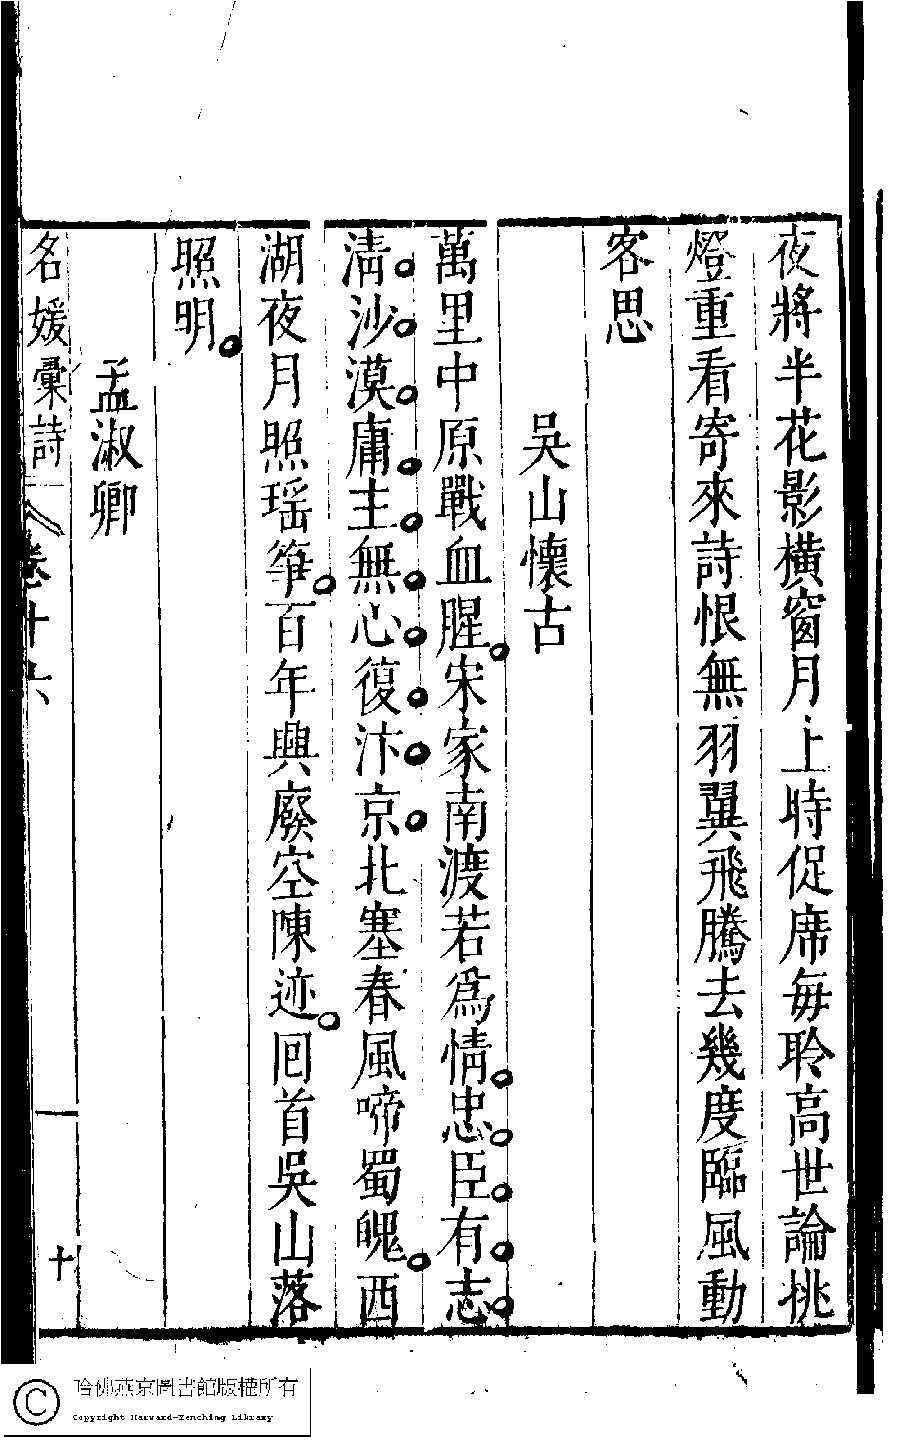 夜將半花影橫窗月上時促席每聆高世論挑
燈重看寄來詩恨無羽翼飛騰去幾度臨風動
客思
吳山懷古
萬里中原戰血腥宋家南渡若為情忠臣有志
清沙漠庸主無心復汴京北塞春風啼蜀魄西
湖夜月照瑶箏百年興廢空陳迹囘首吳山落
照明
孟淑卿
名媛彙詩 卷十六 十
哈佛燕京圖書館版權所有
Copyright Harvard-Yenching Library